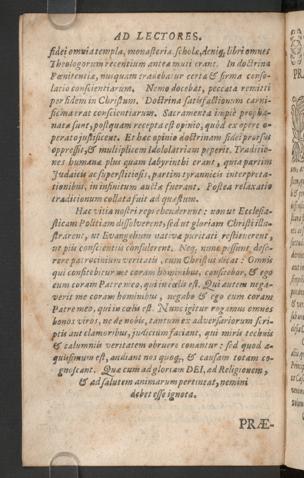 AD LECTORES.
fidei omnia templa, monasteria, scholæ, deniq, libri omnes
Theologorum recentium antea muti erant. In doctrina
Pœnitentiæ, nusquam tradebatur certa & firma conso-
latio conscientiarum. Nemo docebat, peccata remitti
per fidem in Christum. Doctrina satisfactionum carni-
ficina erat conscientiarum. Sacramenta impiè propha-
nata sunt, postquam recepta est opinio, quòd ex opere o-
perato justificent. Et hæc opinio doctrinam fidei prorsus
oppressit, & multiplicem Idololatriam peperit. Traditio-
nes humanæ plus quam labyrinthi erant, quia partim
Judaicis ac superstitiosis, partim tyrannicis interpreta-
tionibus, in infinitum auctæ fuerant. Postea relaxatio
traditionum collata fuit ad quæstum.
Hæc vitia nostri reprehenderunt: non ut Ecclesia-
sticam Politiam dissolverent, sed ut gloriam Christi illu-
strarent, ut Evangelium nativæ puritati restituerent,
ut piis conscientiis consulerent. Neq, nunc possunt dese-
rere patrocinium veritatis, cum Christus dicat: Omnis
qui confitebitur me coram hominibus, confitebor, & ego
eum coram Patre meo, qui in cœlis est. Qui autem nega-
verit me coram hominibus, negabo & ego eum coram
Patre meo, qui in cœlis est. Nunc igitur rogamus omnes
bonos viros, ne de nobis, tantum ex adversariorum scri-
ptis aut clamoribus, judicium faciant, qui miris technis
& calumniis veritatem obruere conantur: sed quod æ-
quissimum est, audiant nos quoq, & causam totam co-
gnoscant. Quæ cum ad gloriam DEI, ad Religionem,
& ad salutem animarum pertineat, nemini
debet esse ignota.
PRÆ-